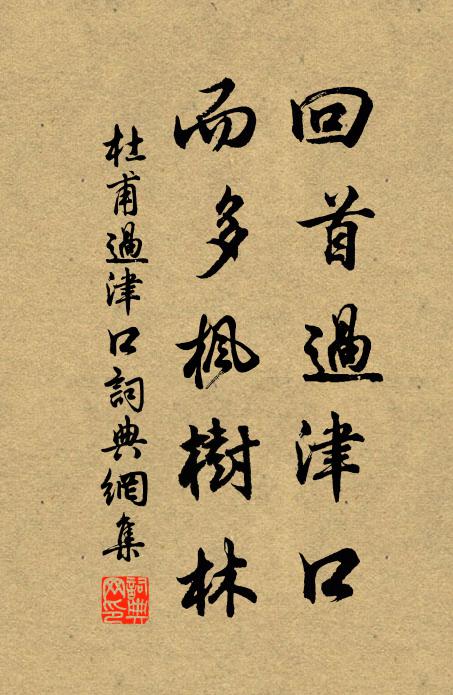 回首過津口
而多楓樹林
杜甫過津口詞典網集
詞典
网印